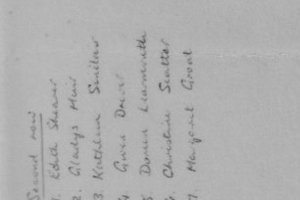 Second row
1. Edith Shearer
2. Gladys Muir
3. Kathleen Sinclair
4. Gwen Drever
5 Doreen Learmonth
6. Christine Scatter
7. Margaret Groat